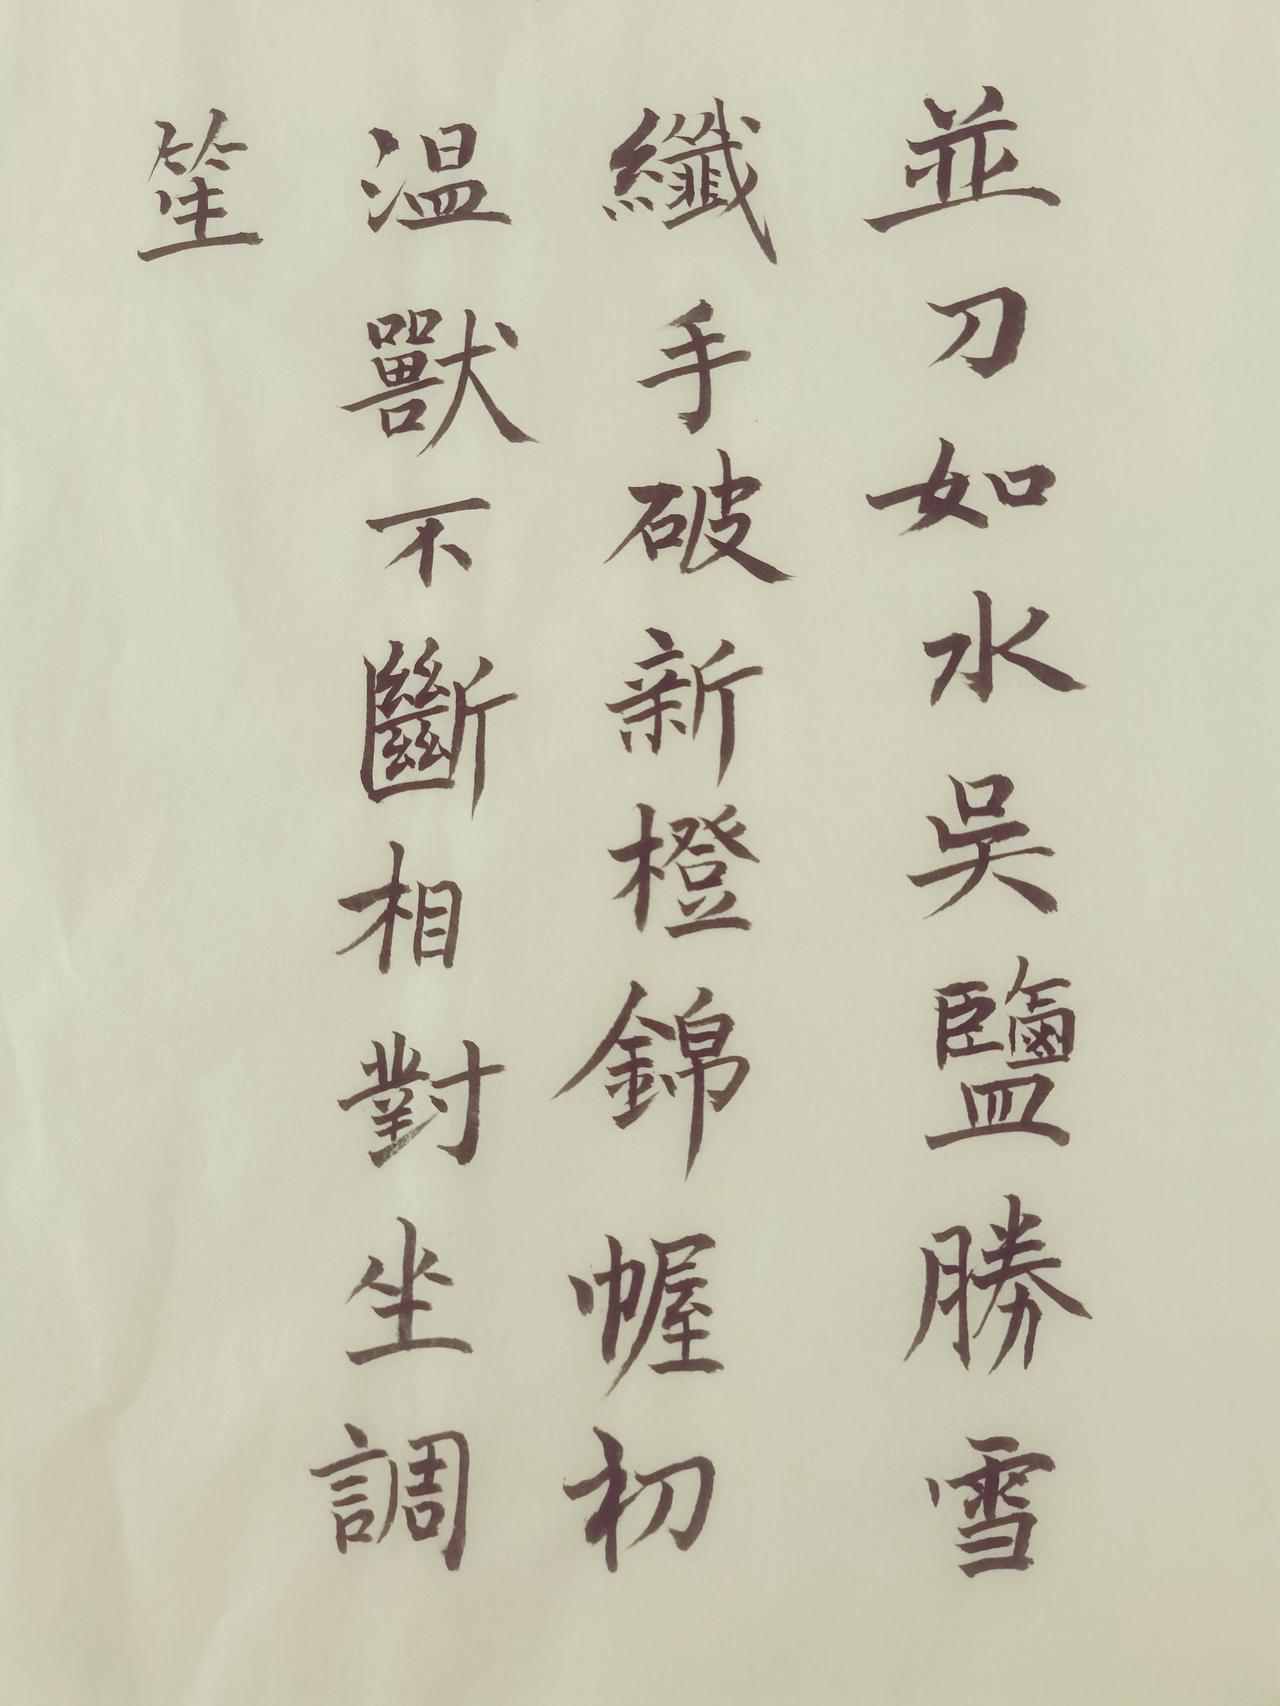 並刀如水吳鹽勝雪
纖手破新橙錦幄初
溫獸不斷相對坐調
笙